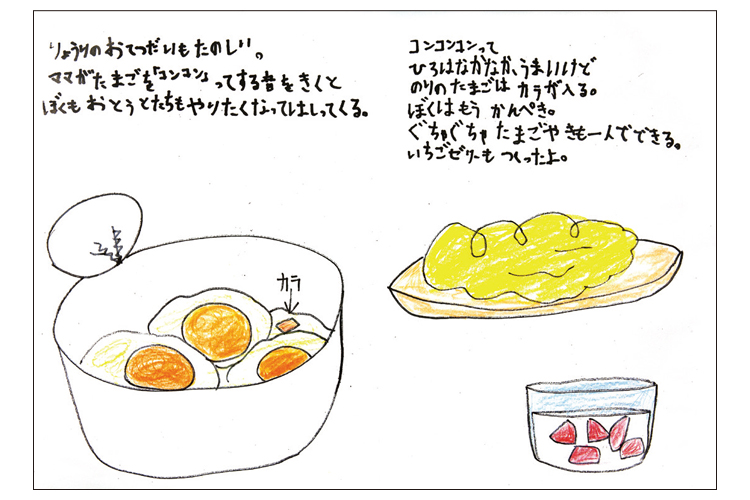 りょうりのおてつだいもたのしい。
ママがたまごを「コンコン」ってする音をきくと
ぼくもおとうとたちもやりたくなってはしってくる。
コンコンコンって
ひろはなかなか、うまいけど
のりのたまごは カラが入る。
ぼくはもう かんぺき。
ぐちゃぐちゃ たまごやきも一人でできる。
いちごゼリーも つくったよ。
カラ